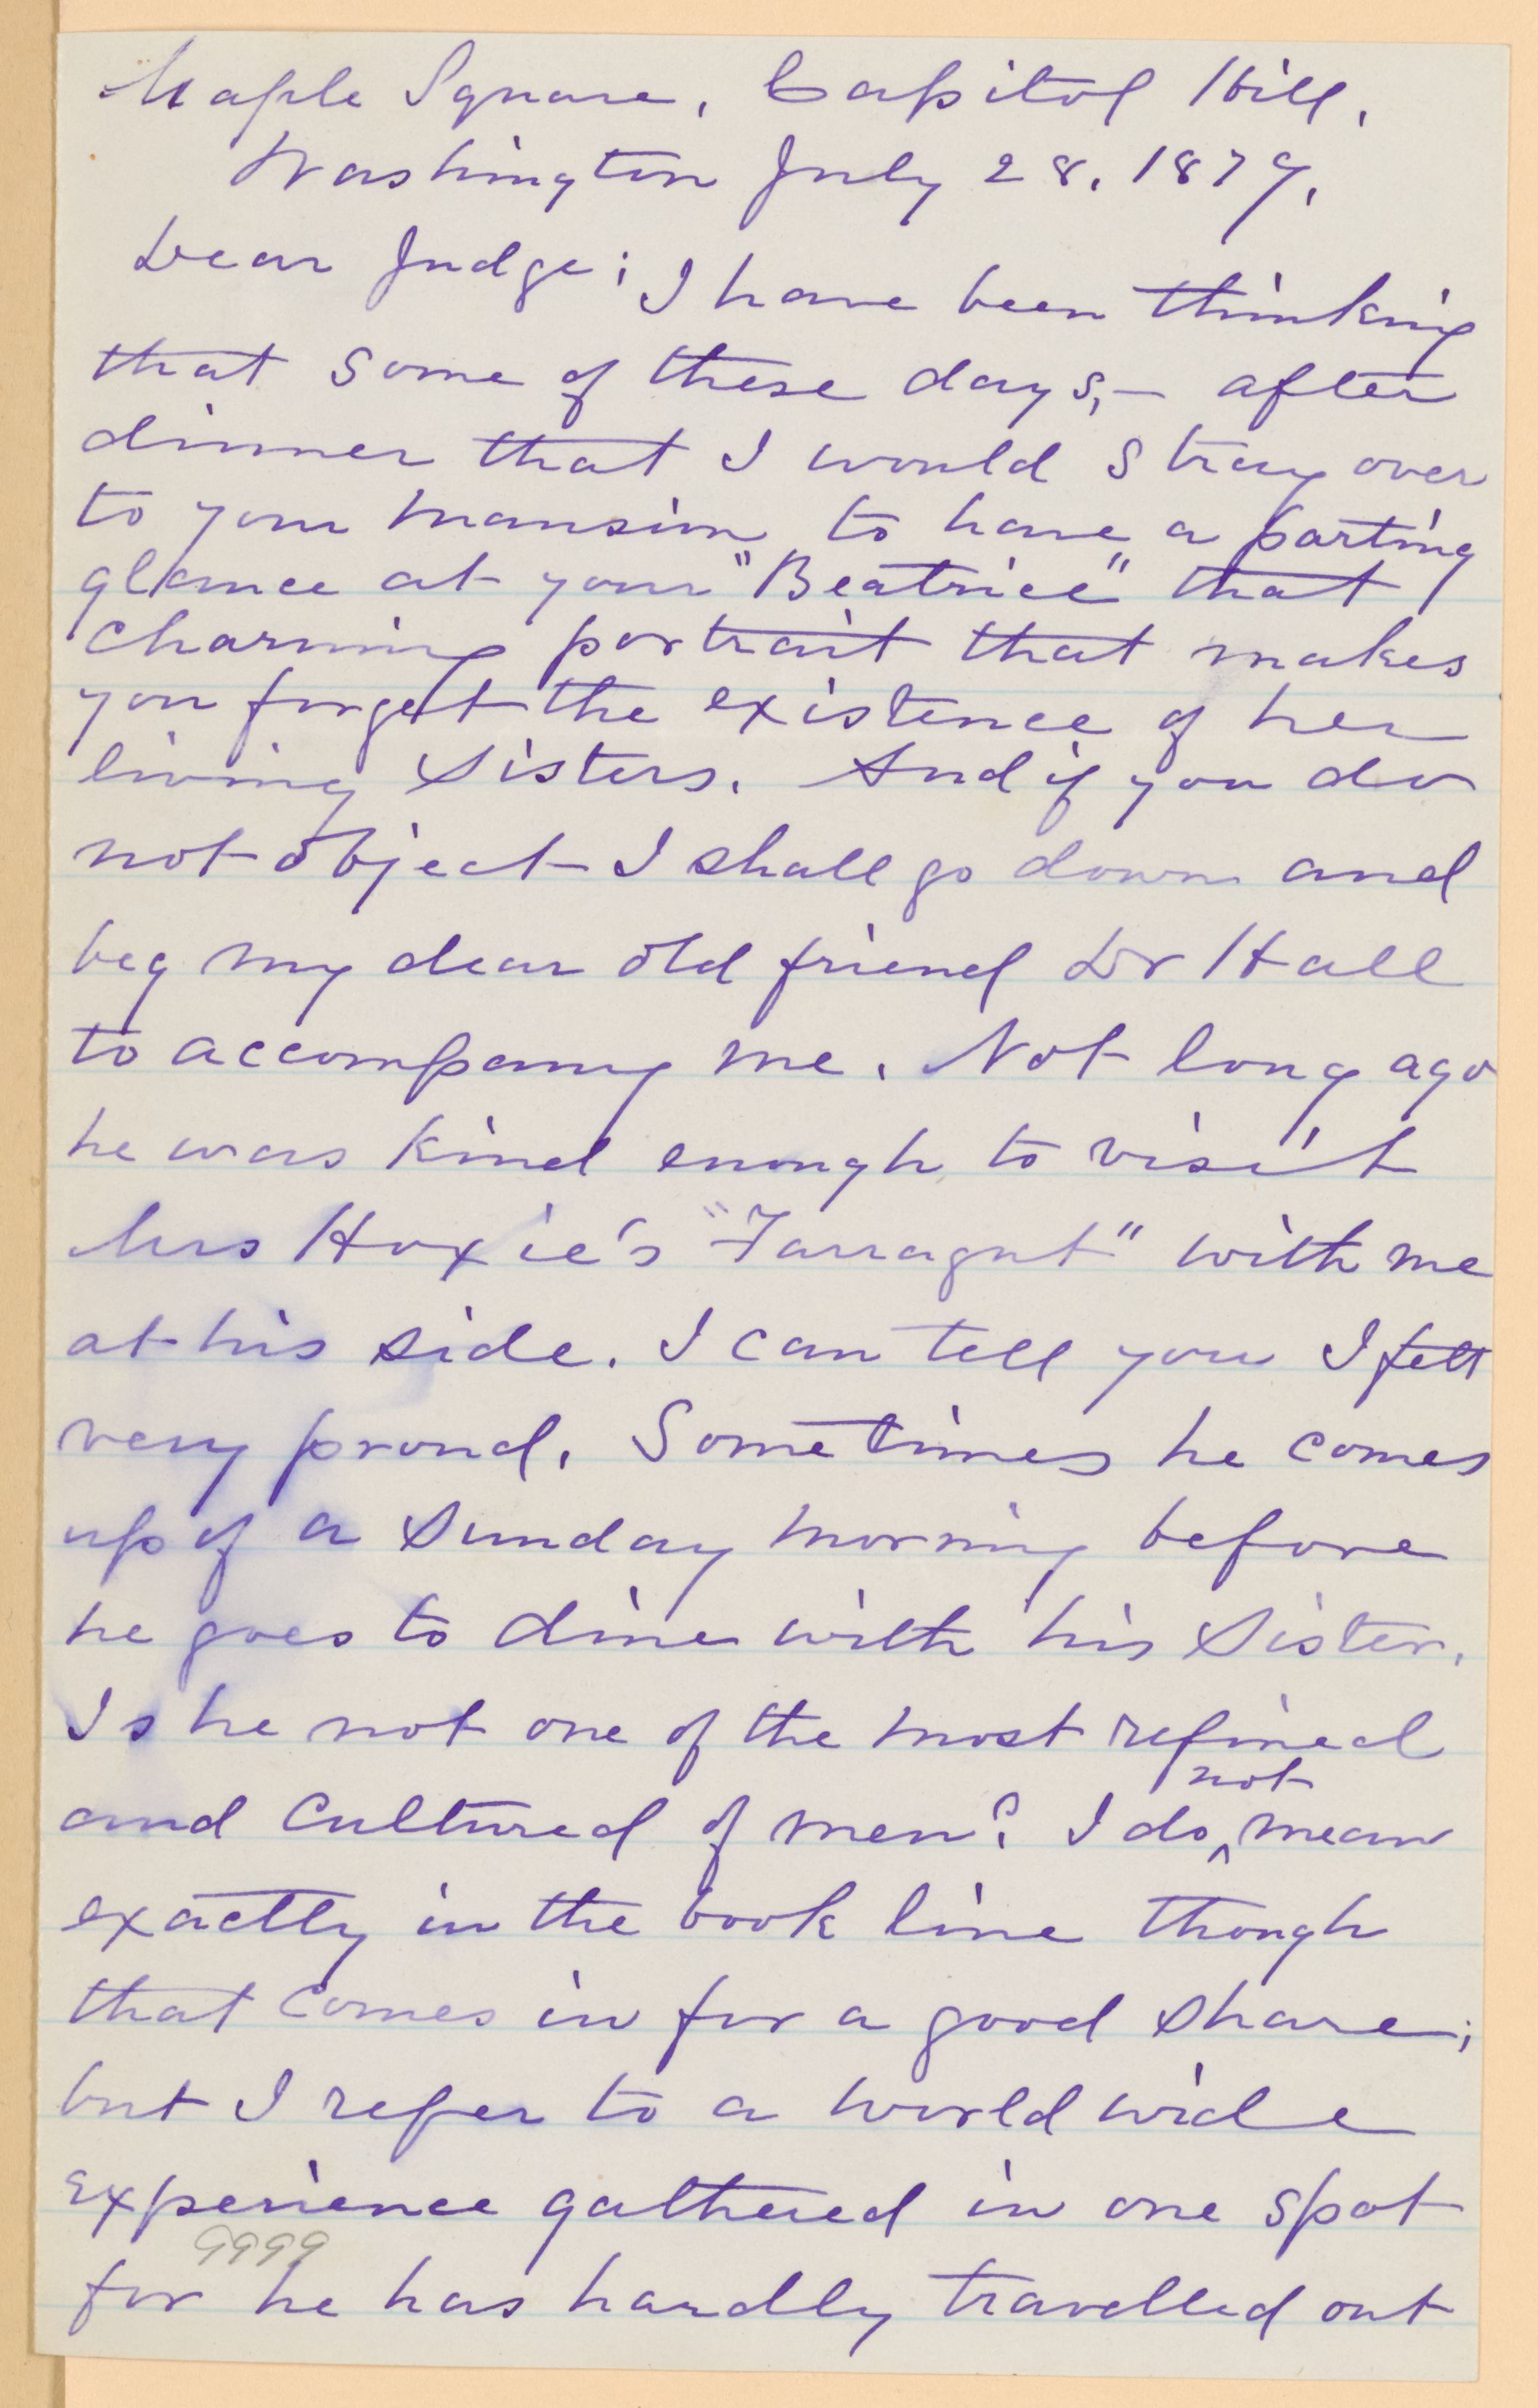 Maple Square, Capitol Hill,
Washington July 28. 1879,
Dear Judge; I have been thinking
that some of these days,— after
dinner that I would stray over
to your mansion to have a parting
glance at your "Beatrice" that
charming portrait that makes
you forget the existence of her
living sisters. And if you do
not object I shall go down and
beg my dear old friend Dr Hall
to accompany me. Not long ago
he was kind enough to visit
Mrs Hoxie's "Farragut" with me
at his side. I can tell you I felt
very proud. Sometimes he comes
up of a Sunday morning before
he goes to dine with his Sister.
Is he not one of the most refined
not
and cultured of men? I do ^ mean
exactly in the book line though
that comes in for a good share;
but I refer to a world wide
experience gathered in one spot
9999
for he has hardly travelled out